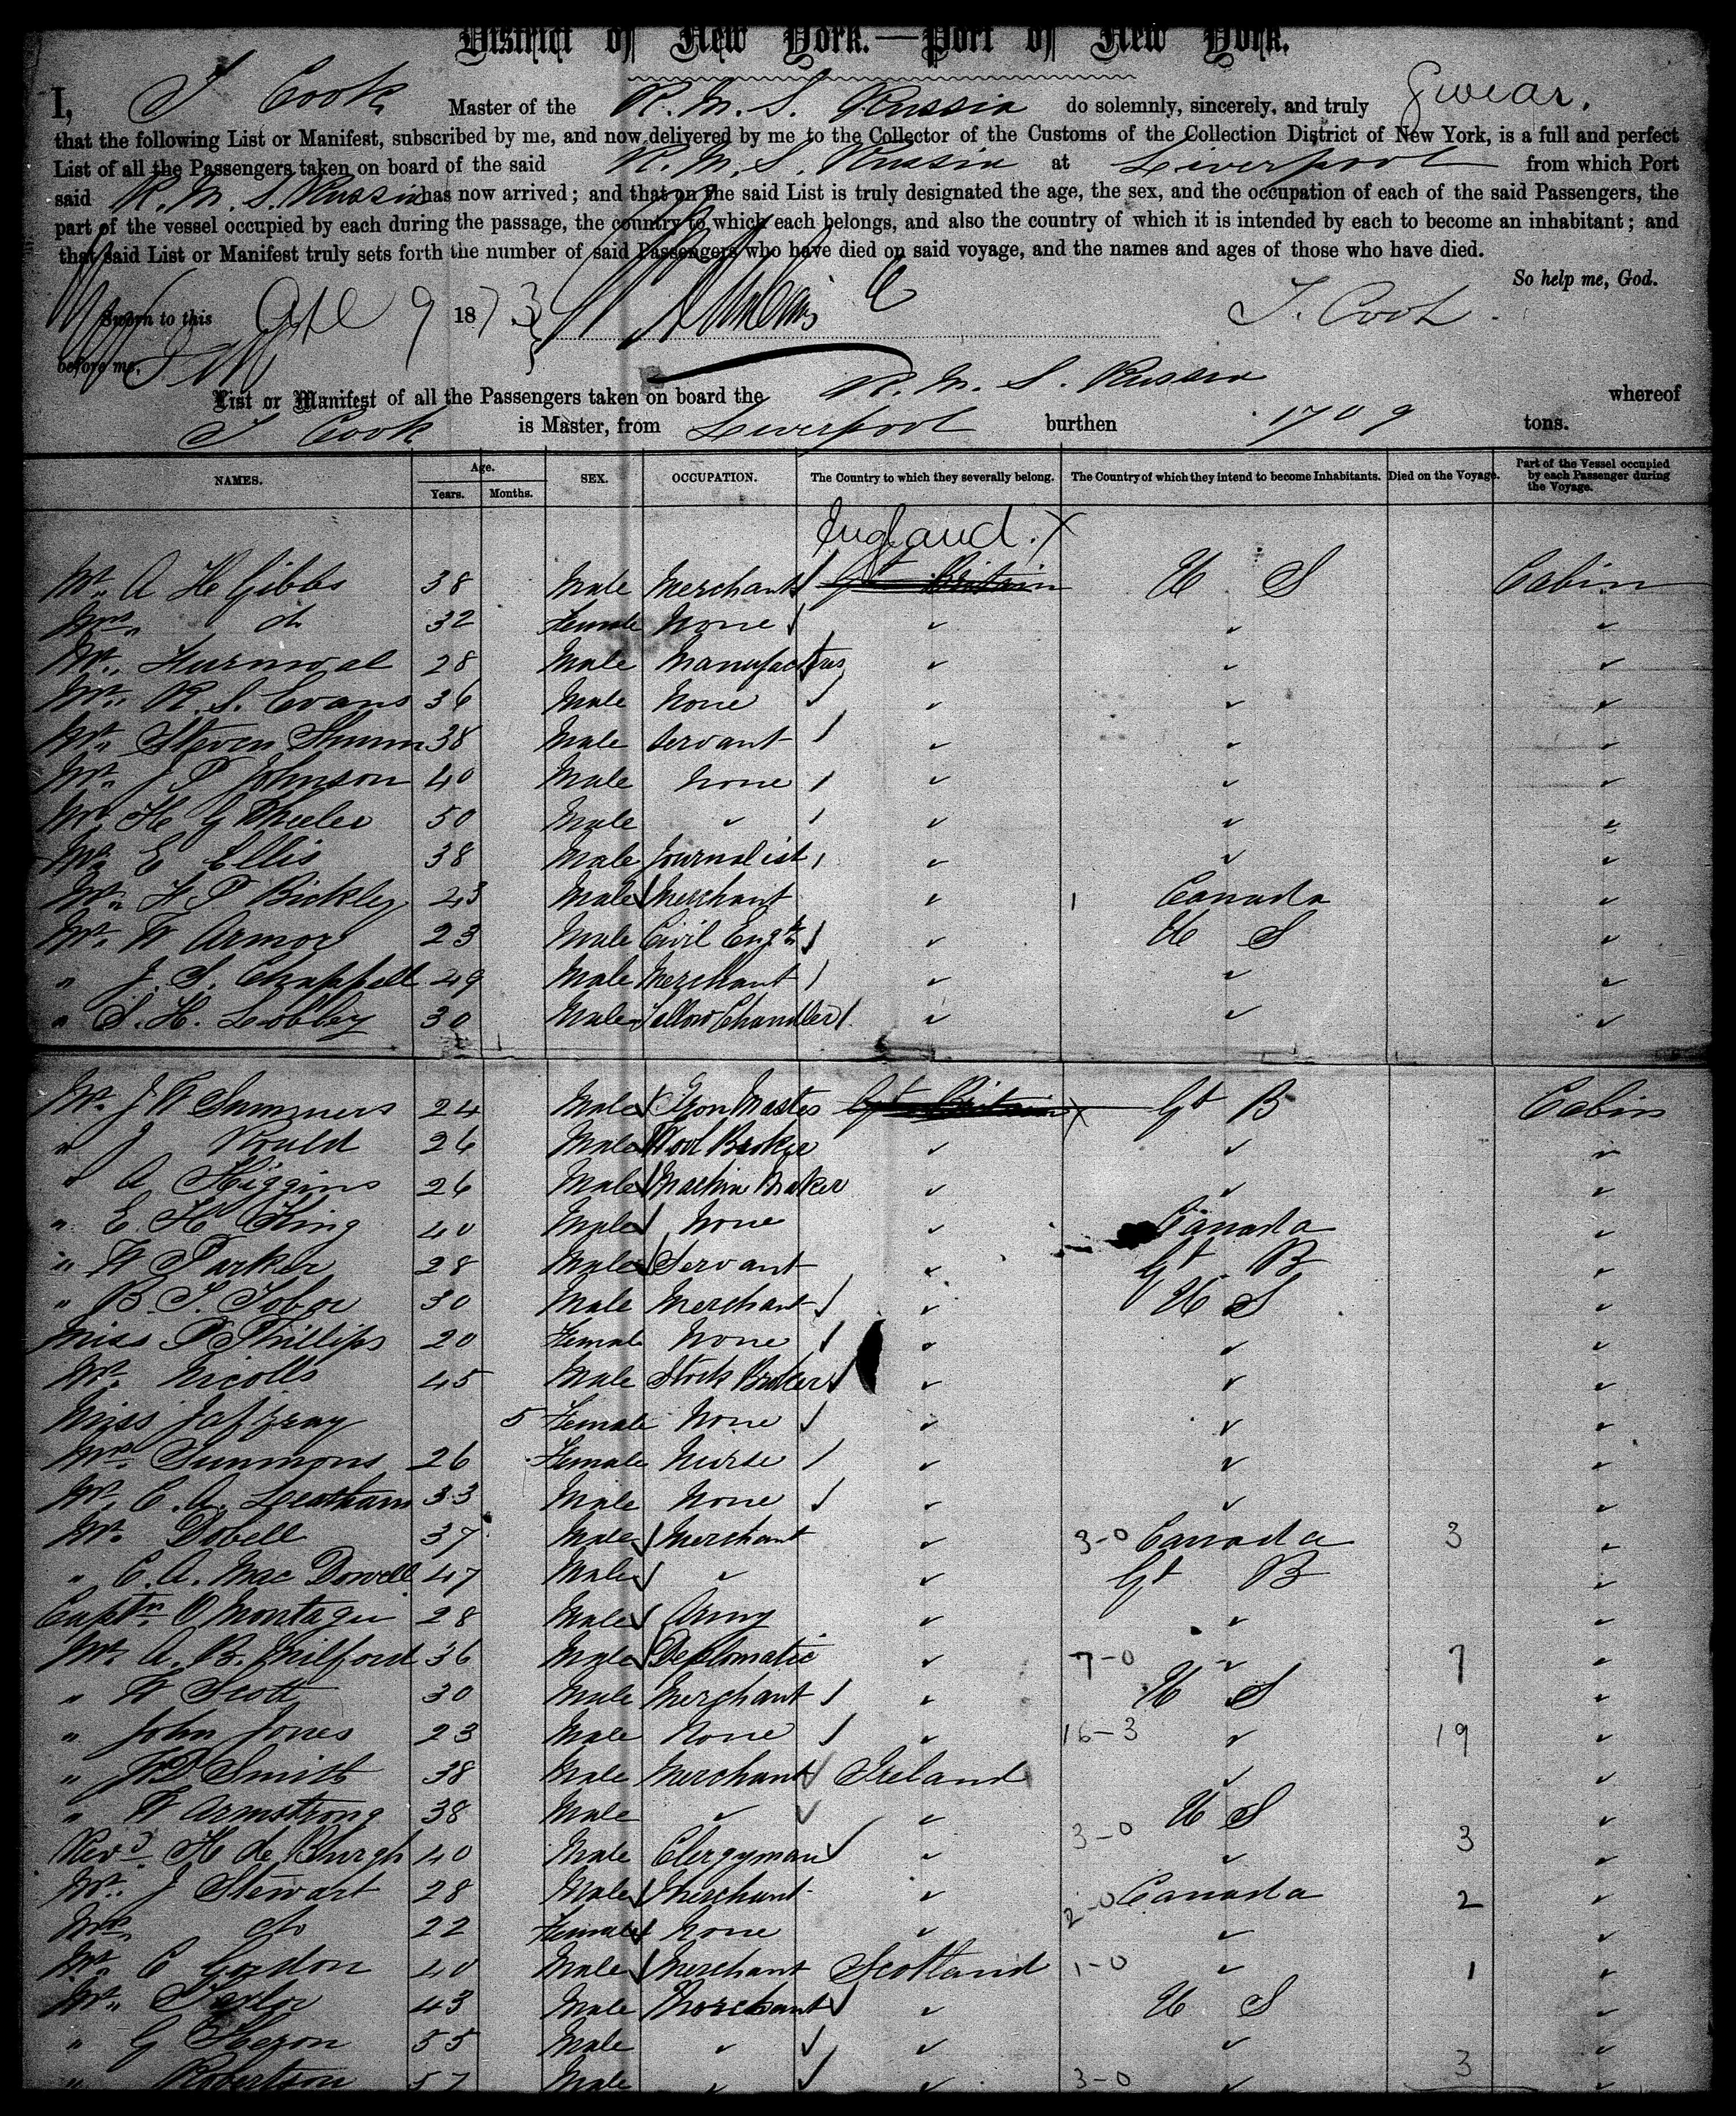 District of New York.—Port of New York.
I, J Cook Master of the R. M. S. Russia do solemnly, sincerely, and truly Swear.
that the following List or Manifest, subscribed by me, and now delivered by me to the Collector of the Customs of the Collection District of New York, is a full and perfect
List of all the Passengers taken on board of the said R. M. S. Russia at Liverpool from which Port
said R. M. S. Russia has now arrived; and that on the said List is truly designated the age, the sex, and the occupation of each of the said Passengers, the
part of the vessel occupied by each during the passage, the country to which each belongs, and also the country of which it is intended by each to become an inhabitant; and
that said List or Manifest truly sets forth the number of said Passengers who have died on said voyage, and the names and ages of those who have died.
So help me, God.
Sworn to this Apl 9 1873 J. Cook
before me,
List or Manifest of all the Passengers taken on board the R. M. S. Russia whereof
J Cook is Master, from Liverpool burthen 1709 tons.
NAMES. Age. Years. Months. SEX. OCCUPATION. The Country to which they severally belong. The Country of which they intend to become Inhabitants. Died on the Voyage. Part of the Vessel occupied by each Passenger during the Voyage.
England. X
Mr. A H Gibbs 38 Male Merchant Gt Britain U S Cabin
Mrs. do 32 Female None
Mr. Furnival 28 Male Manufactures
Mr. R. S. Evans 36 Male None
Mr. Steven 38 Male Servant
Mr. J P Johnson 40 Male None
Mr. H G Wheeler 50 Male
Mr. E Ellis 38 Male Journalist
Mr. H P Bickley 43 Male Merchant 1 Canada
Mr. W Armor 23 Male Civil Engr U S
" J. S. Chappell 49 Male Merchant
" S. H. Lobley 30 Male Tallow Chandler
Mr. J W Summers 24 Male Iron Master Gt Britain X Gt B Cabin
" J Pould 26 Male Wool Broker
" A Higgins 26 Male Machine Broker
" E. H King 40 Male None Canada
" W Parker 28 Male Servant Gt B
" B. T. 30 Male Merchant U S
Miss P Phillips 20 Female None
Mr. Nicolls 45 Male Stock Broker
Miss Jaffray 5 Female None
Mrs. Summons 26 Female Nurse
Mr. C. A. Leatham 33 Male None
Mr. Dobell 37 Male Merchant 3-0 Canada 3
" C. A. Mac Dowell 47 Male Gt B
Captn. O Montagu 28 Male Army
Mr. A. B. Milford 36 Male Deplomatic 7-0 7
" W Scott 30 Male Merchant U S
" John Jones 23 Male None 16-3 19
" Smith 38 Male Merchant Ireland
" W Armstrong 38 Male U S
Revd. H de Burgh 40 Male Clergyman 3-0 3
Mr. J Stewart 28 Male Merchant 2-0 Canada 2
Mrs. do 22 Female None
Mr. C Gordon 40 Male Merchant Scotland 1-0 1
Mr. Taylor 43 Male Merchant U S
" G Heron 55 Male
" Robertson 57 Male 3-0 3